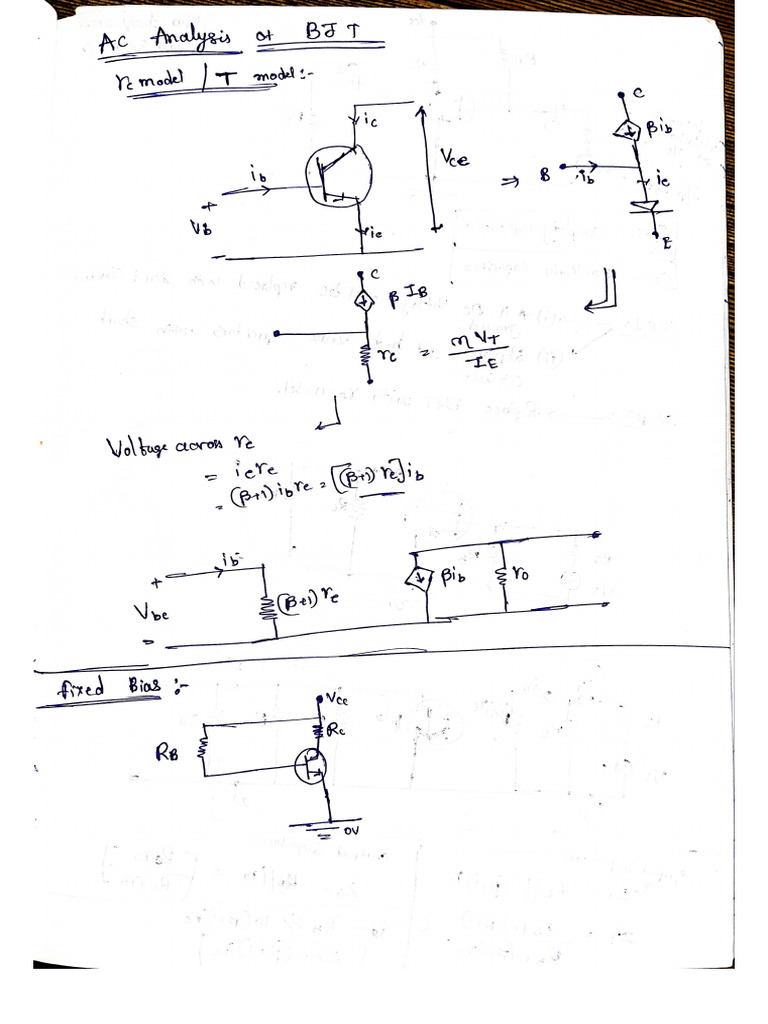 AC Analysis of BJT
re model / T model :-
ic
ib
Vce
+
Vb
ie
-
⇒
C
βib
B
ib
ie
E
C
β IB
re = ηVT / IE
Voltage across re
= ie re
= (β+1) ib re = [(β+1) re] ib
ib
+
Vbe
-
(β+1) re
βib
ro
fixed Bias :-
Vcc
Rc
RB
0V